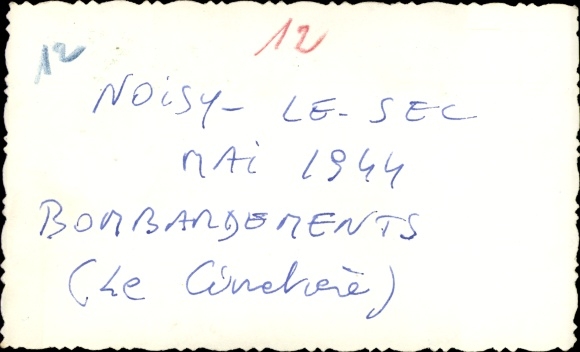 12 12
NOISY-LE-SEC
MAI 1944
BOMBARDEMENTS
(Le Cimetière)